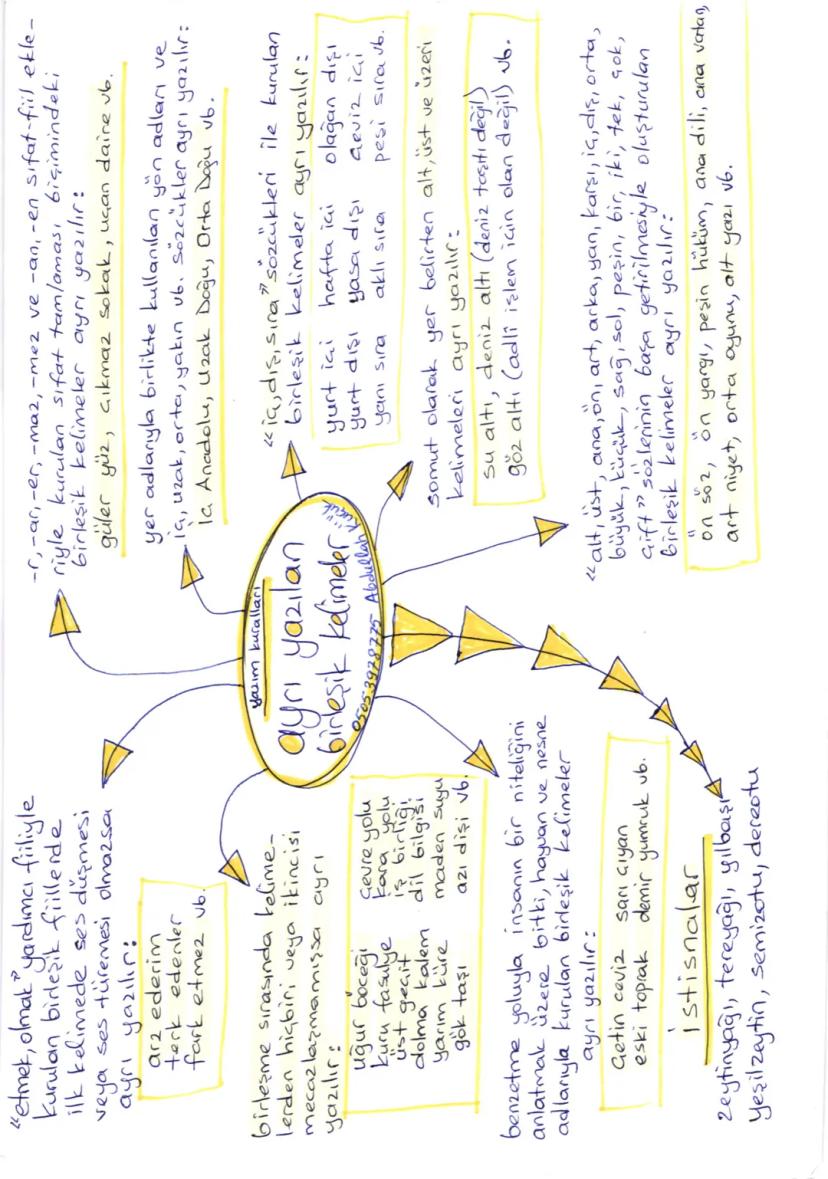 yazım kuralları
ayrı yazılan
birleşik kelimeler
0505 3978775 Abdullah Küçük
"etmek, olmak" yardımcı fiiliyle
kurulan birleşik fiillerde
ilk kelimede ses düşmesi
veya ses türemesi olmazsa
ayrı yazılır:
arz ederim
terk edenler
fark etmez vb.
birleşme sırasında kelime-
lerden hiçbiri veya ikincisi
mecazlaşmamışsa ayrı
yazılır:
uğur böceği çevre yolu
kuru fasulye kara yolu
üst geçit iş birliği
dolma kalem dil bilgisi
yarım küre maden suyu
gök taşı azı dişi vb.
benzetme yoluyla insanın bir niteliğini
anlatmak üzere bitki, hayvan ve nesne
adlarıyla kurulan birleşik kelimeler
ayrı yazılır:
çetin ceviz sarı çıyan
eski toprak demir yumruk vb.
istisnalar
zeytinyağı, tereyağı, yılbaşı
yeşilzeytin, semizotu, dereotu
-r, -ar, -er, -maz, -mez ve -an, -en sıfat-fiil ekle-
riyle kurulan sıfat tamlaması biçimindeki
birleşik kelimeler ayrı yazılır:
güler yüz, çıkmaz sokak, uçan daire vb.
yer adlarıyla birlikte kullanılan yön adları ve
iç, uzak, orta, yakın vb. sözcükler ayrı yazılır:
İç Anadolu, Uzak Doğu, Orta Doğu vb.
"iç, dış, sıra" sözcükleri ile kurulan
birleşik kelimeler ayrı yazılır:
yurt içi hafta içi olağan dışı
yurt dışı yasa dışı ceviz içi
yanı sıra aklı sıra peşi sıra vb.
somut olarak yer belirten alt, üst ve üzeri
kelimeleri ayrı yazılır:
su altı, deniz altı (deniz taşıtı değil)
göz altı (adli işlem için olan değil) vb.
"alt, üst, ana, ön, art, arka, yan, karşı, iç, dış, orta,
büyük, küçük, sağ, sol, peşin, bir, iki, tek, çok,
çift" sözlerinin başa getirilmesiyle oluşturulan
birleşik kelimeler ayrı yazılır:
ön söz, ön yargı, peşin hüküm, ana dili, ana vatan,
art niyet, orta oyunu, alt yazı vb.